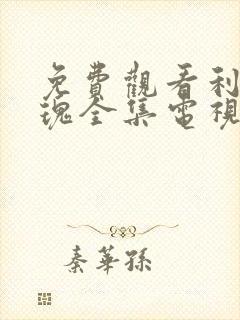 免費觀看利
瑰全集電視
秦華孫